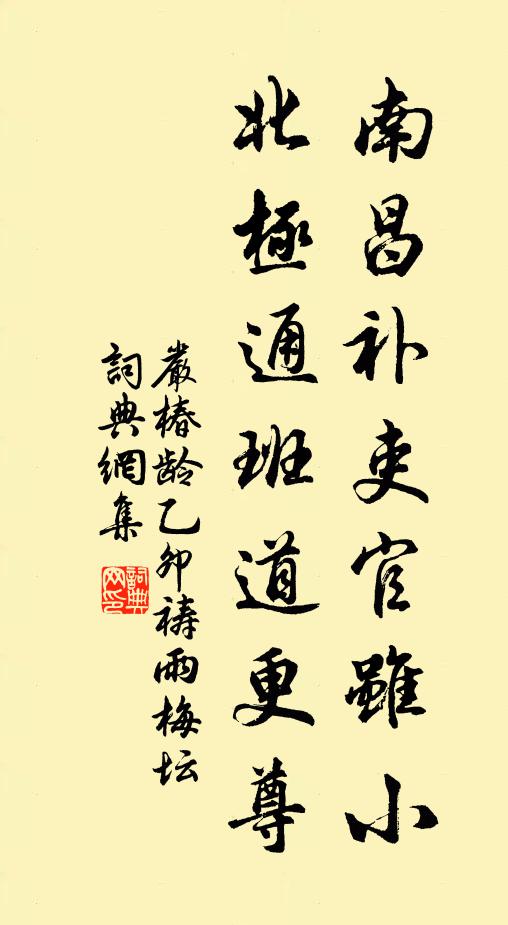 南昌补吏官雖小
北極通班道更尊
嚴椿龄乙卯禱雨梅坛
詞典網集
詞典網印